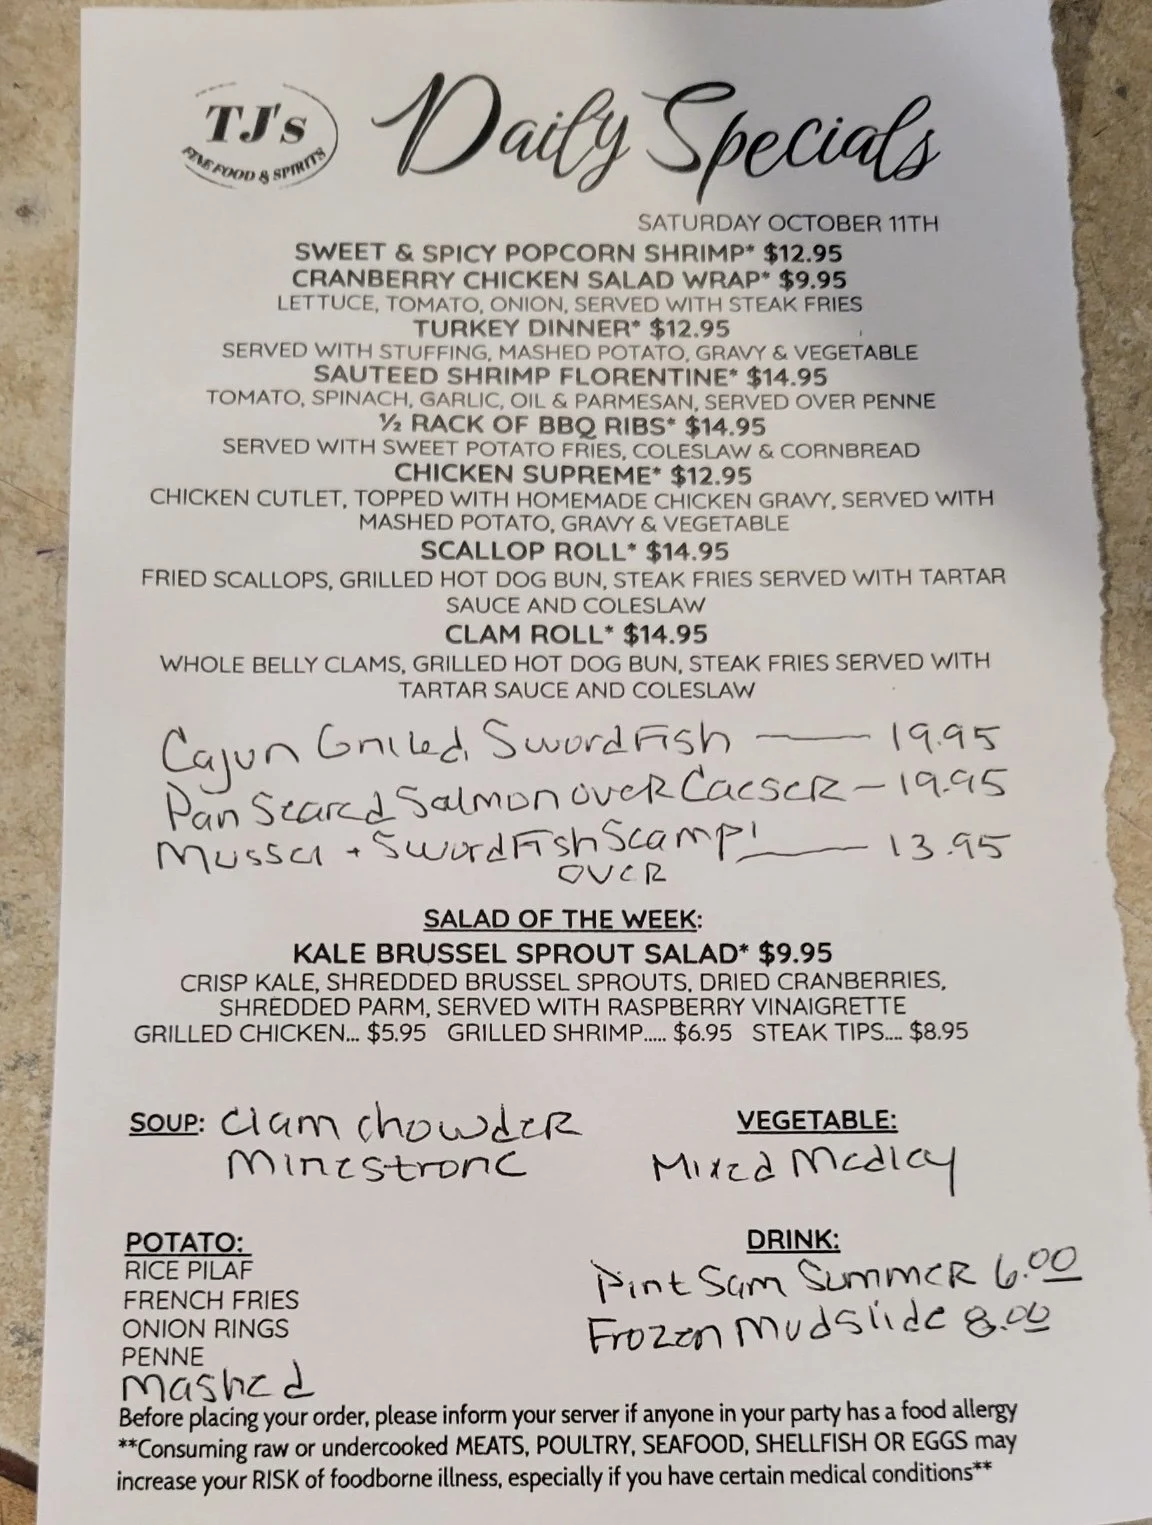 TJ's
FINE FOOD & SPIRITS
Daily Specials
SATURDAY OCTOBER 11TH
SWEET & SPICY POPCORN SHRIMP* $12.95
CRANBERRY CHICKEN SALAD WRAP* $9.95
LETTUCE, TOMATO, ONION, SERVED WITH STEAK FRIES
TURKEY DINNER* $12.95
SERVED WITH STUFFING, MASHED POTATO, GRAVY & VEGETABLE
SAUTEED SHRIMP FLORENTINE* $14.95
TOMATO, SPINACH, GARLIC, OIL & PARMESAN, SERVED OVER PENNE
½ RACK OF BBQ RIBS* $14.95
SERVED WITH SWEET POTATO FRIES, COLESLAW & CORNBREAD
CHICKEN SUPREME* $12.95
CHICKEN CUTLET, TOPPED WITH HOMEMADE CHICKEN GRAVY, SERVED WITH
MASHED POTATO, GRAVY & VEGETABLE
SCALLOP ROLL* $14.95
FRIED SCALLOPS, GRILLED HOT DOG BUN, STEAK FRIES SERVED WITH TARTAR
SAUCE AND COLESLAW
CLAM ROLL* $14.95
WHOLE BELLY CLAMS, GRILLED HOT DOG BUN, STEAK FRIES SERVED WITH
TARTAR SAUCE AND COLESLAW
Cajun Grilled SwordFish — 19.95
Pan Seared Salmon over Caeser — 19.95
Mussel + SwordFish Scampi — 13.95
over
SALAD OF THE WEEK:
KALE BRUSSEL SPROUT SALAD* $9.95
CRISP KALE, SHREDDED BRUSSEL SPROUTS, DRIED CRANBERRIES,
SHREDDED PARM, SERVED WITH RASPBERRY VINAIGRETTE
GRILLED CHICKEN... $5.95 GRILLED SHRIMP..... $6.95 STEAK TIPS.... $8.95
SOUP: Clam chowder
Minestrone
VEGETABLE:
Mixed Medley
POTATO:
RICE PILAF
FRENCH FRIES
ONION RINGS
PENNE
Mashed
DRINK:
Pint Sam Summer 6.00
Frozen Mudslide 8.00
Before placing your order, please inform your server if anyone in your party has a food allergy
**Consuming raw or undercooked MEATS, POULTRY, SEAFOOD, SHELLFISH OR EGGS may
increase your RISK of foodborne illness, especially if you have certain medical conditions**